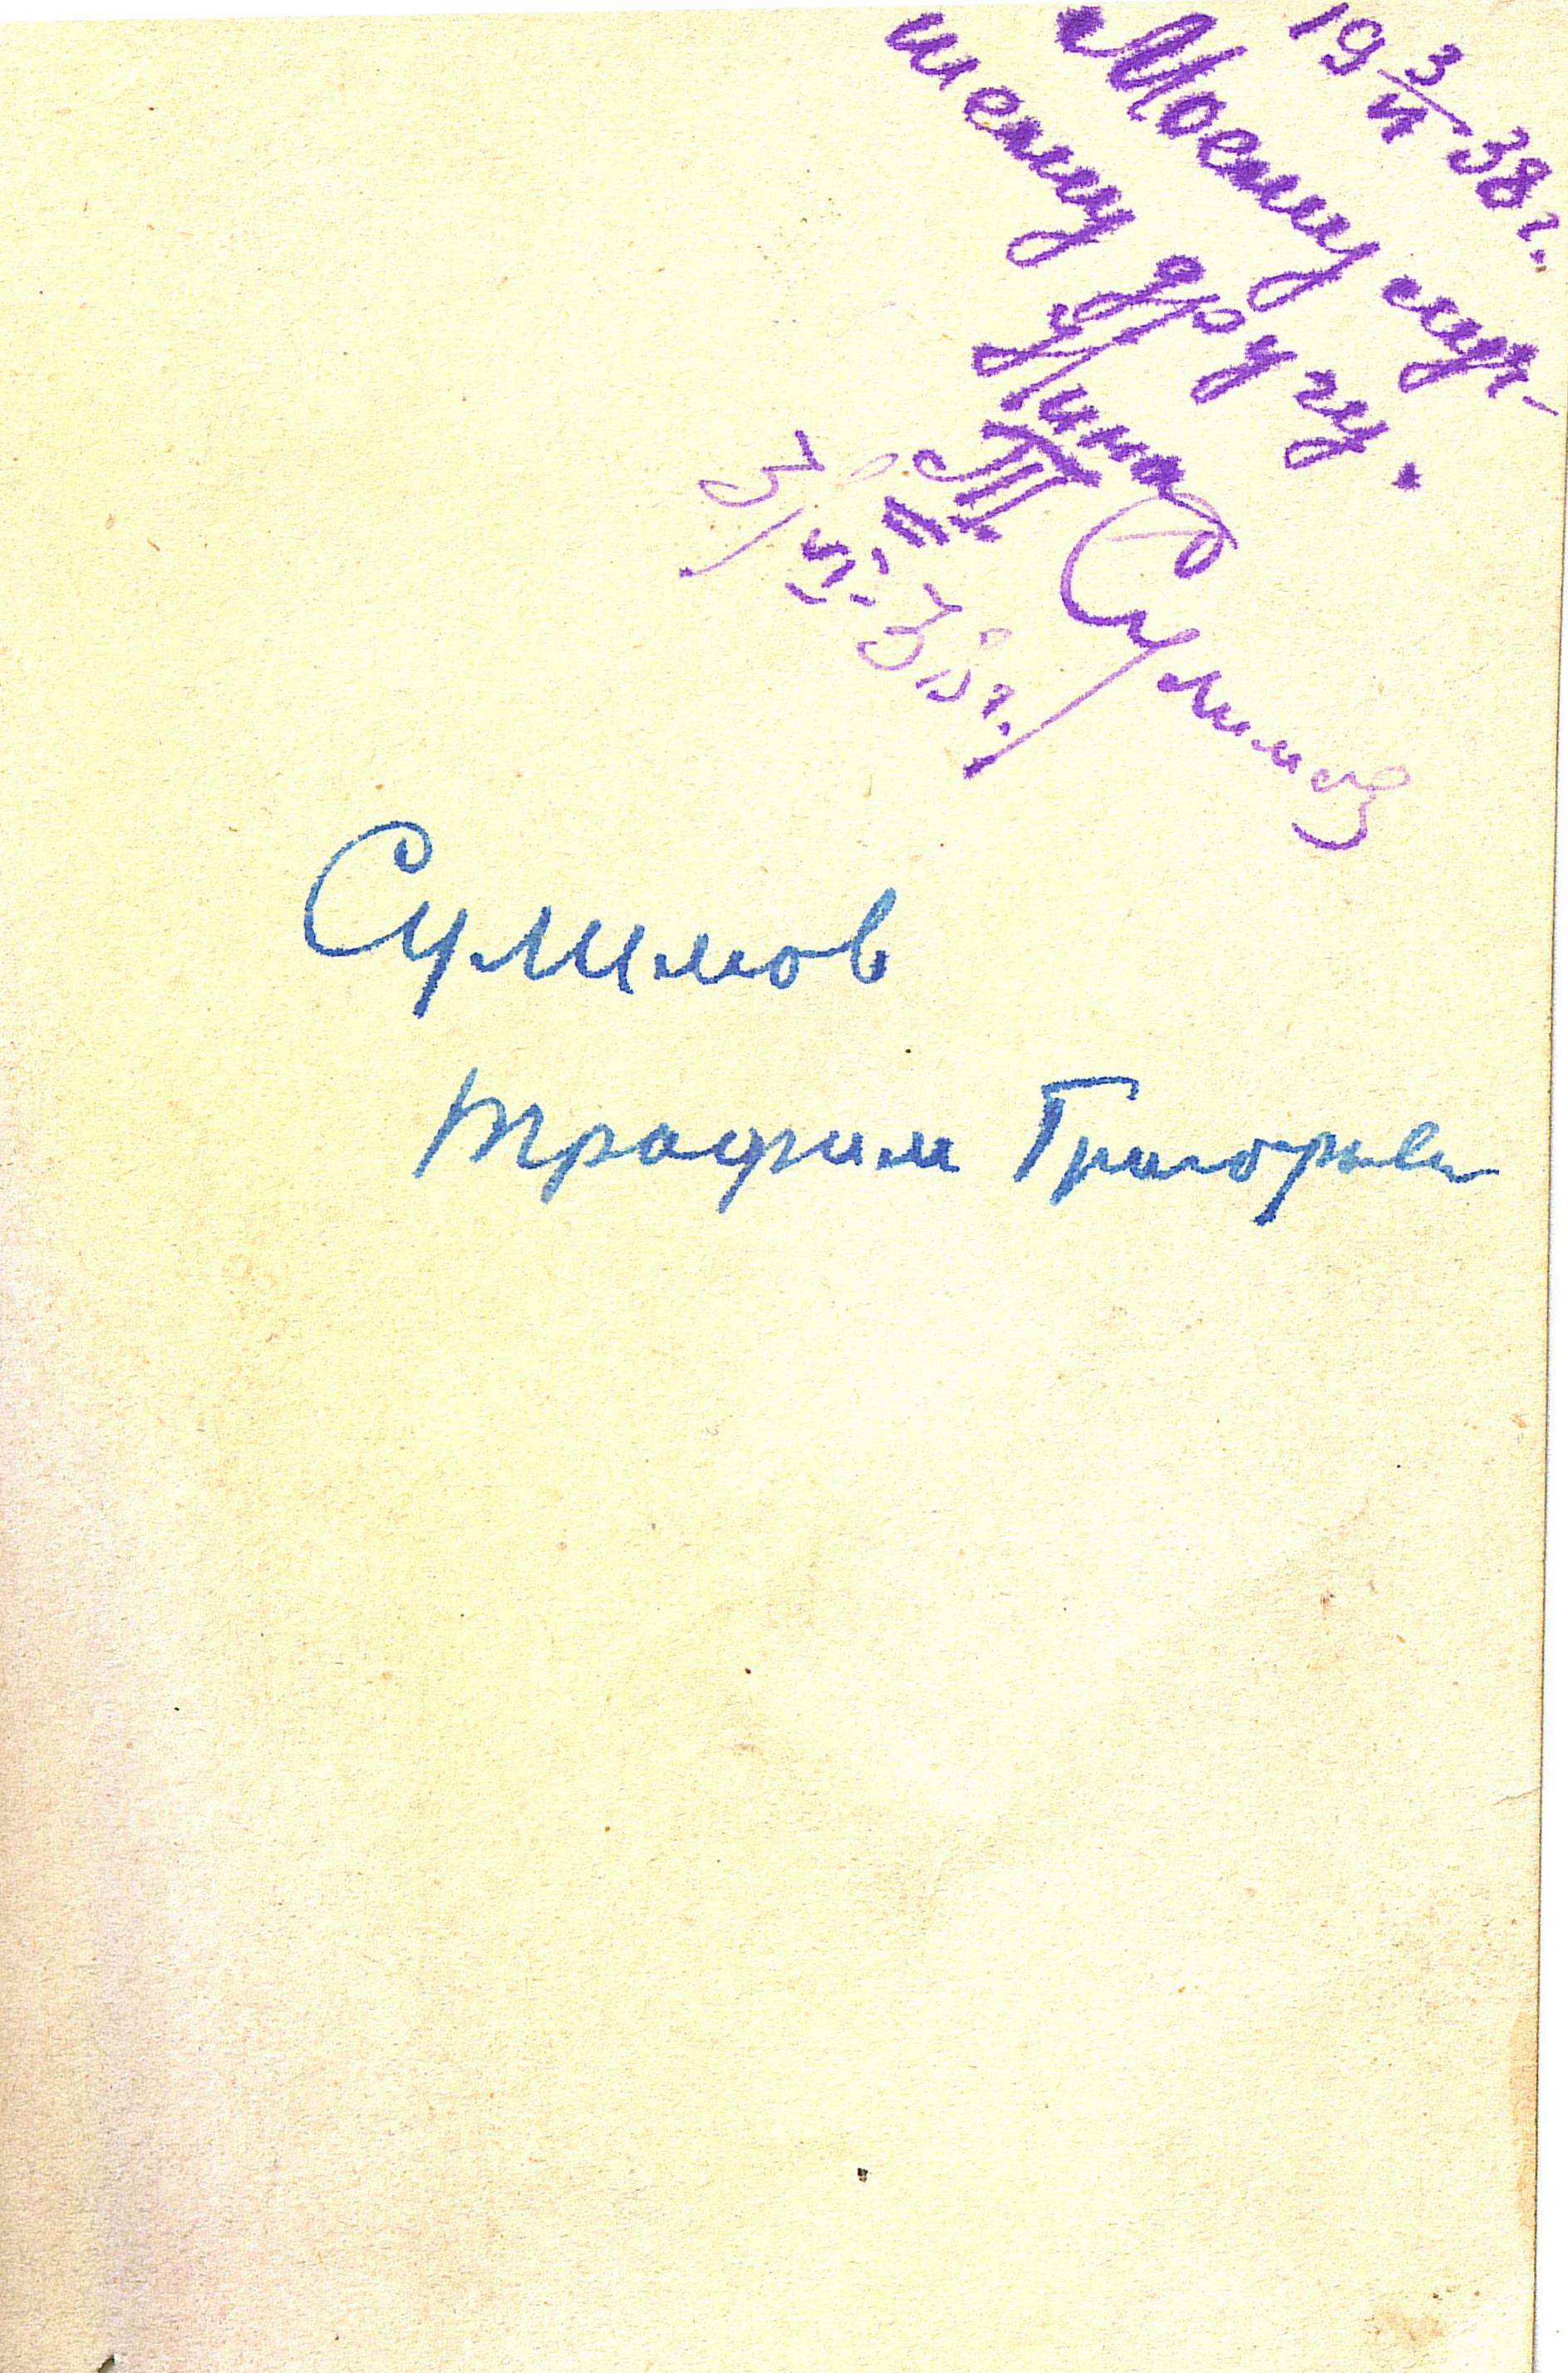 19 3/VI 38 г.
Моему луч-
шему другу.
Лина
Т. Сулимов
3/VI-38г.
Сулимов
Трофим Григорьев